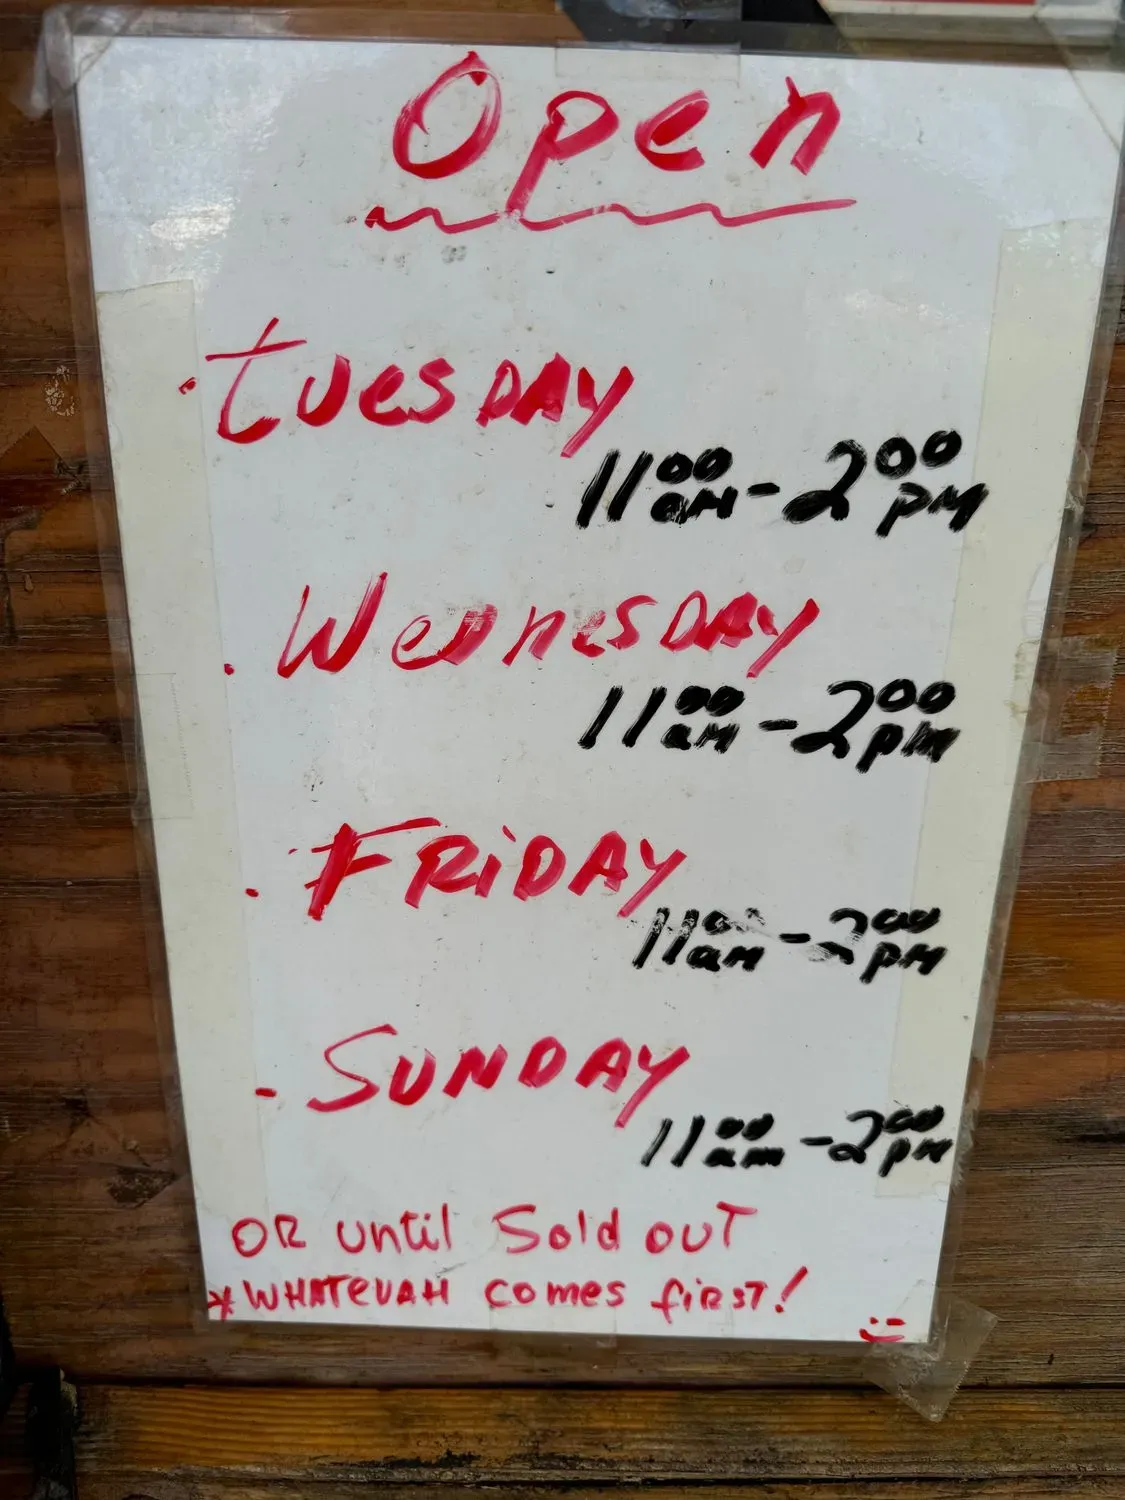 Open
· tuesDAY
11:00 am - 2:00 pm
· WeDnesDAY
11:00 am - 2:00 pm
· FRiDAY
11:00 am - 2:00 pm
- SUNDAY
11:00 am - 2:00 pm
OR until Sold ouT
* WHATEVAH comes fiRST!
:)